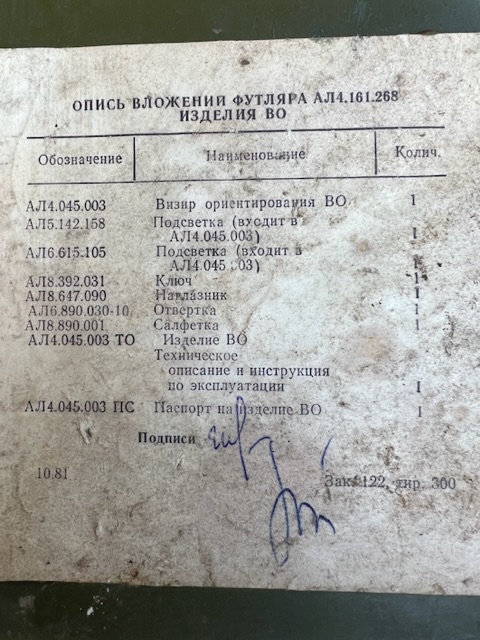 ОПИСЬ ВЛОЖЕНИЙ ФУТЛЯРА АЛ4.161.268
ИЗДЕЛИЯ ВО
Обозначение Наименование Колич.
АЛ4.045.003 Визир ориентирования ВО 1
АЛ5.142.158 Подсветка (входит в
АЛ4.045.003) 1
АЛ6.615.105 Подсветка (входит в
АЛ4.045 03) 1
АЛ8.392.031 Ключ 1
АЛ8.647.090 Наглазник 1
АЛ6.890.030-10 Отвертка 1
АЛ8.890.001 Салфетка 1
АЛ4.045.003 ТО Изделие ВО
Техническое
описание и инструкция
по эксплуатации 1
АЛ4.045.003 ПС Паспорт на изделие ВО 1
Подписи
10.81 Зак. 122, тир. 300